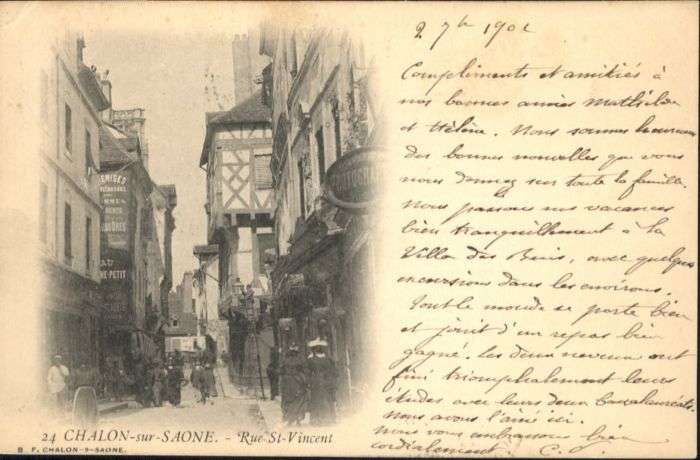 2 7bre 1902
Compliments et amitiés à
nos bonnes amies Mathilde
et Hélène. Nous sommes heureux
des bonnes nouvelles que vous
nous donnez sur toute la famille.
Nous passons nos vacances
bien tranquillement à la
Villa des Buis, avec quelques
excursions dans les environs.
Tout le monde se porte bien
et jouit d'un repos bien
gagné. Les deux neveux ont
fini triomphalement leurs
études avec leurs deux baccalauréats.
Nous avons l'aîné ici.
Nous vous embrassons bien
cordialement. C. G.
REMISES
LIQUEURS
AU
NE-PETIT
24 CHALON-sur-SAONE. - Rue St-Vincent
B F. CHALON-S-SAONE.